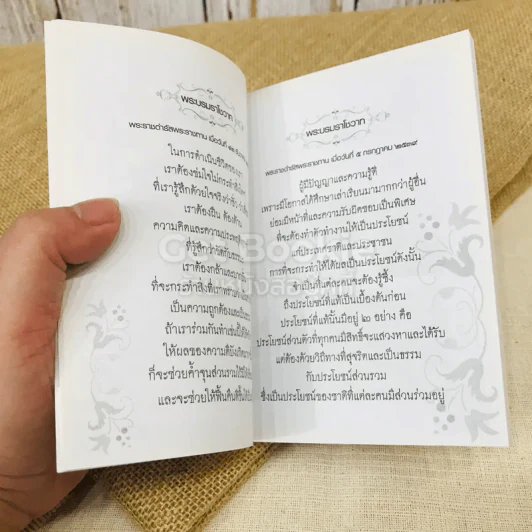 พระบรมราโชวาท
พระราชดำรัสพระราชทาน เมื่อวันที่ ๑๒
ในการดำเนินชีวิตของเรา
เราต้องข่มใจไม่กระทำสิ่งใด
ที่เรารู้สึกด้วยใจจริงว่าชั่ว
เราต้องฝืน ต้องต้าน
ความคิดและความประพฤติ
ที่รู้สึกว่าขัดกับ
เราต้องกล้าและ
ที่จะกระทำสิ่งที่เราทราบ
เป็นความถูกต้องและเป็น
ถ้าเราร่วมกันทำเช่นนี้
ให้ผลของความดีบังเกิด
ก็จะช่วยค้ำจุนส่วนรวมไว้
และจะช่วยให้ฟื้นคืนดีขึ้น
พระบรมราโชวาท
พระราชดำรัสพระราชทาน เมื่อวันที่ ๕ กรกฎาคม ๒๕๓๙
ผู้มีปัญญาและความรู้ดี
เพราะมีโอกาสได้ศึกษาเล่าเรียนมามากกว่าผู้อื่น
ย่อมมีหน้าที่และความรับผิดชอบเป็นพิเศษ
ที่จะต้องทำตัวทำงานให้เป็นประโยชน์
แก่ประเทศชาติและประชาชน
การที่จะกระทำให้ได้ผลเป็นประโยชน์ดังนั้น
จำเป็นที่แต่ละคนจะต้องรู้ซึ้ง
ถึงประโยชน์ที่แท้เป็นเบื้องต้นก่อน
ประโยชน์ที่แท้นั้นมีอยู่ ๒ อย่าง คือ
ประโยชน์ส่วนตัวที่ทุกคนมีสิทธิ์จะแสวงหาและได้รับ
แต่ต้องด้วยวิถีทางที่สุจริตและเป็นธรรม
กับประโยชน์ส่วนรวม
ซึ่งเป็นประโยชน์ของชาติที่แต่ละคนมีส่วนร่วมอยู่